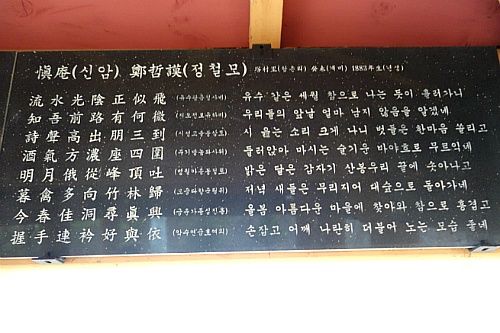 愼庵(신암) 鄭哲謨(정철모) 1883年生(년생)
流水光陰正似飛 (유수광음정사비) 유수 같은 세월 참으로 나는 듯이 흘러가니
知吾前路有何微 (지오전로유하미) 우리들의 앞날 얼마 남지 않음을 알겠네
詩聲高出朋三到 (시성고출붕삼도) 시 읊는 소리 크게 나니 벗들은 한마음 쏠리고
酒氣方濃座四圍 (주기방농좌사위) 둘러앉아 마시는 술기운 바야흐로 무르익네
明月俄從峰頂吐 (명월아종봉정토) 밝은 달은 갑자기 산봉우리 끝에 솟아나고
暮禽多向竹林歸 (모금다향죽림귀) 저녁 새들은 무리지어 대숲으로 돌아가네
今春佳洞尋眞興 (금춘가동심진흥) 올봄 아름다운 마을에 찾아와 참으로 흥겹고
握手連衿好與依 (악수연금호여의) 손잡고 어깨 나란히 더불어 노는 모습 좋네